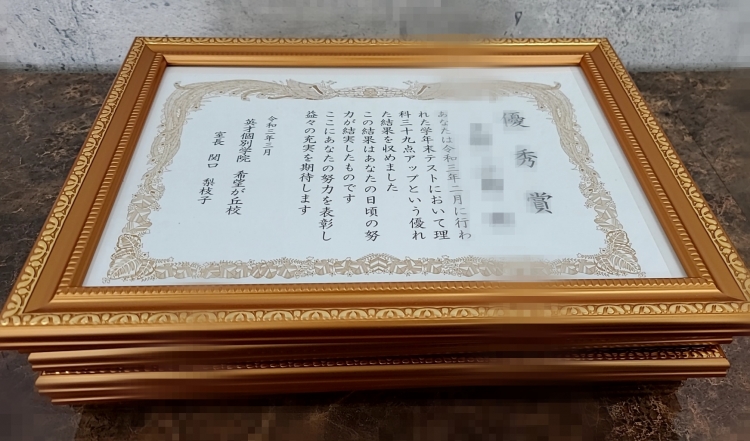 優秀賞
あなたは令和三年二月に行わ
れた学年末テストにおいて理
科三十九点アップという優れ
た結果を収めました
この結果はあなたの日頃の努
力が結実したものです
ここにあなたの努力を表彰し
益々の充実を期待します
令和三年三月
英才個別学院 希望が丘校
室長 関口 梨枝子